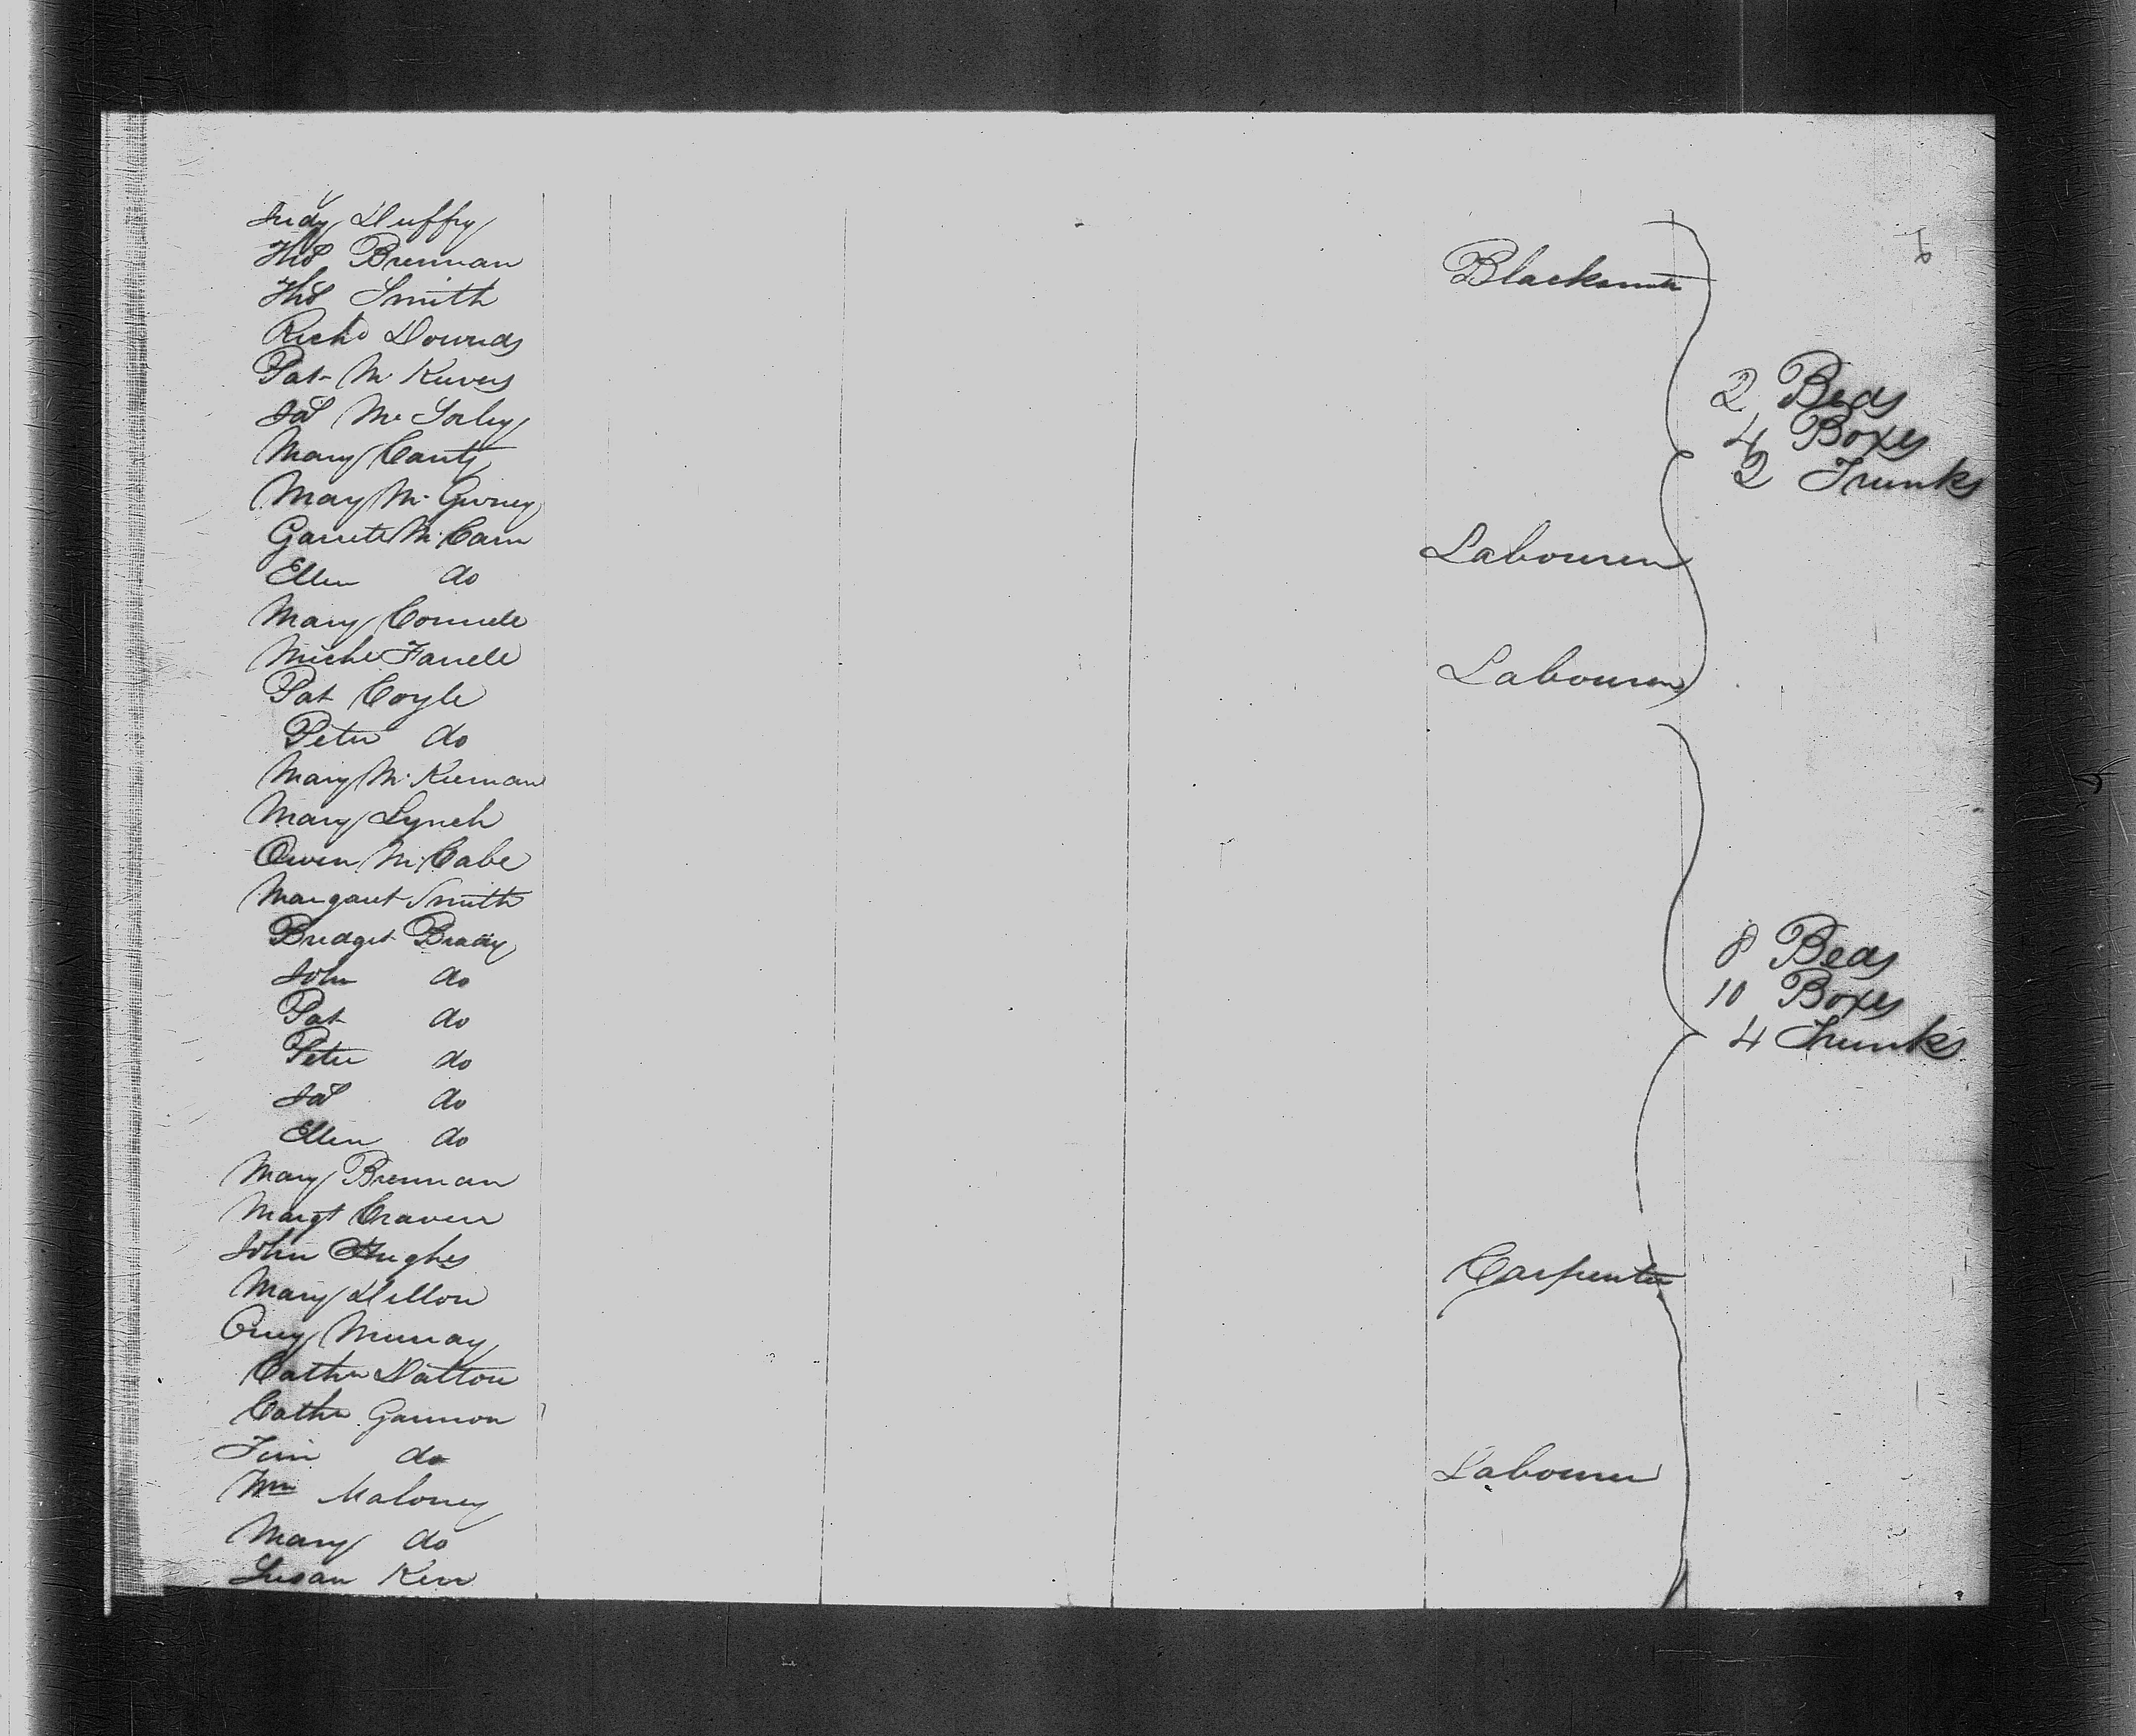 Judy Duffy
Thos Brennan
Thos Smith Blacksmith
Richd Downds
Pat Mc Kuvers
Jas Mc Sorley 2 Beds
Mary Canty 4 Boxes
Mary Mc Givney 2 Trunks
Garrett Mc Cann
Ellen do Labourer
Mary Connell
Michl Farrell
Pat Coyle Labourer
Peter do
Mary Mc Kiernan
Mary Lynch
Owen Mc Cabe
Margaret Smith
Bridget Brady
John do 8 Beds
Pat do 10 Boxes
Peter do 4 Trunks
Jas do
Ellen do
Mary Brennan
Margt Craven
John Hughes Carpenter
Mary Dillon
Murray
Cathn Dalton
Cathn Gannon
Tim do Labourer
Wm Maloney
Mary do
Susan Kerr